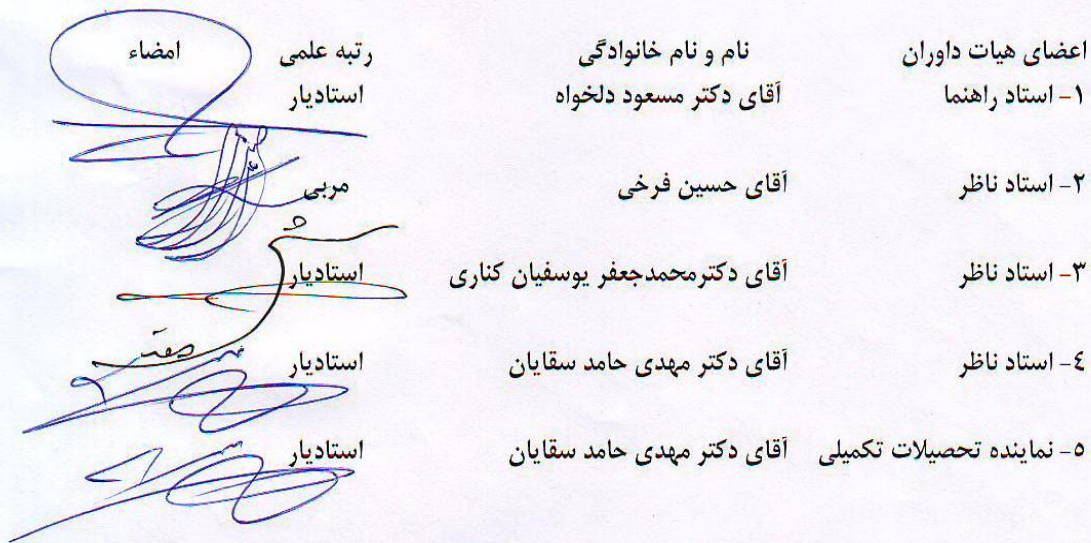 اعضای هیات داوران نام و نام خانوادگی رتبه علمی امضاء
۱- استاد راهنما آقای دکتر مسعود دلخواه استادیار
۲- استاد ناظر آقای حسین فرخی مربی
۳- استاد ناظر آقای دکترمحمدجعفر یوسفیان کناری استادیار
٤- استاد ناظر آقای دکتر مهدی حامد سقایان استادیار
٥- نماینده تحصیلات تکمیلی آقای دکتر مهدی حامد سقایان استادیار